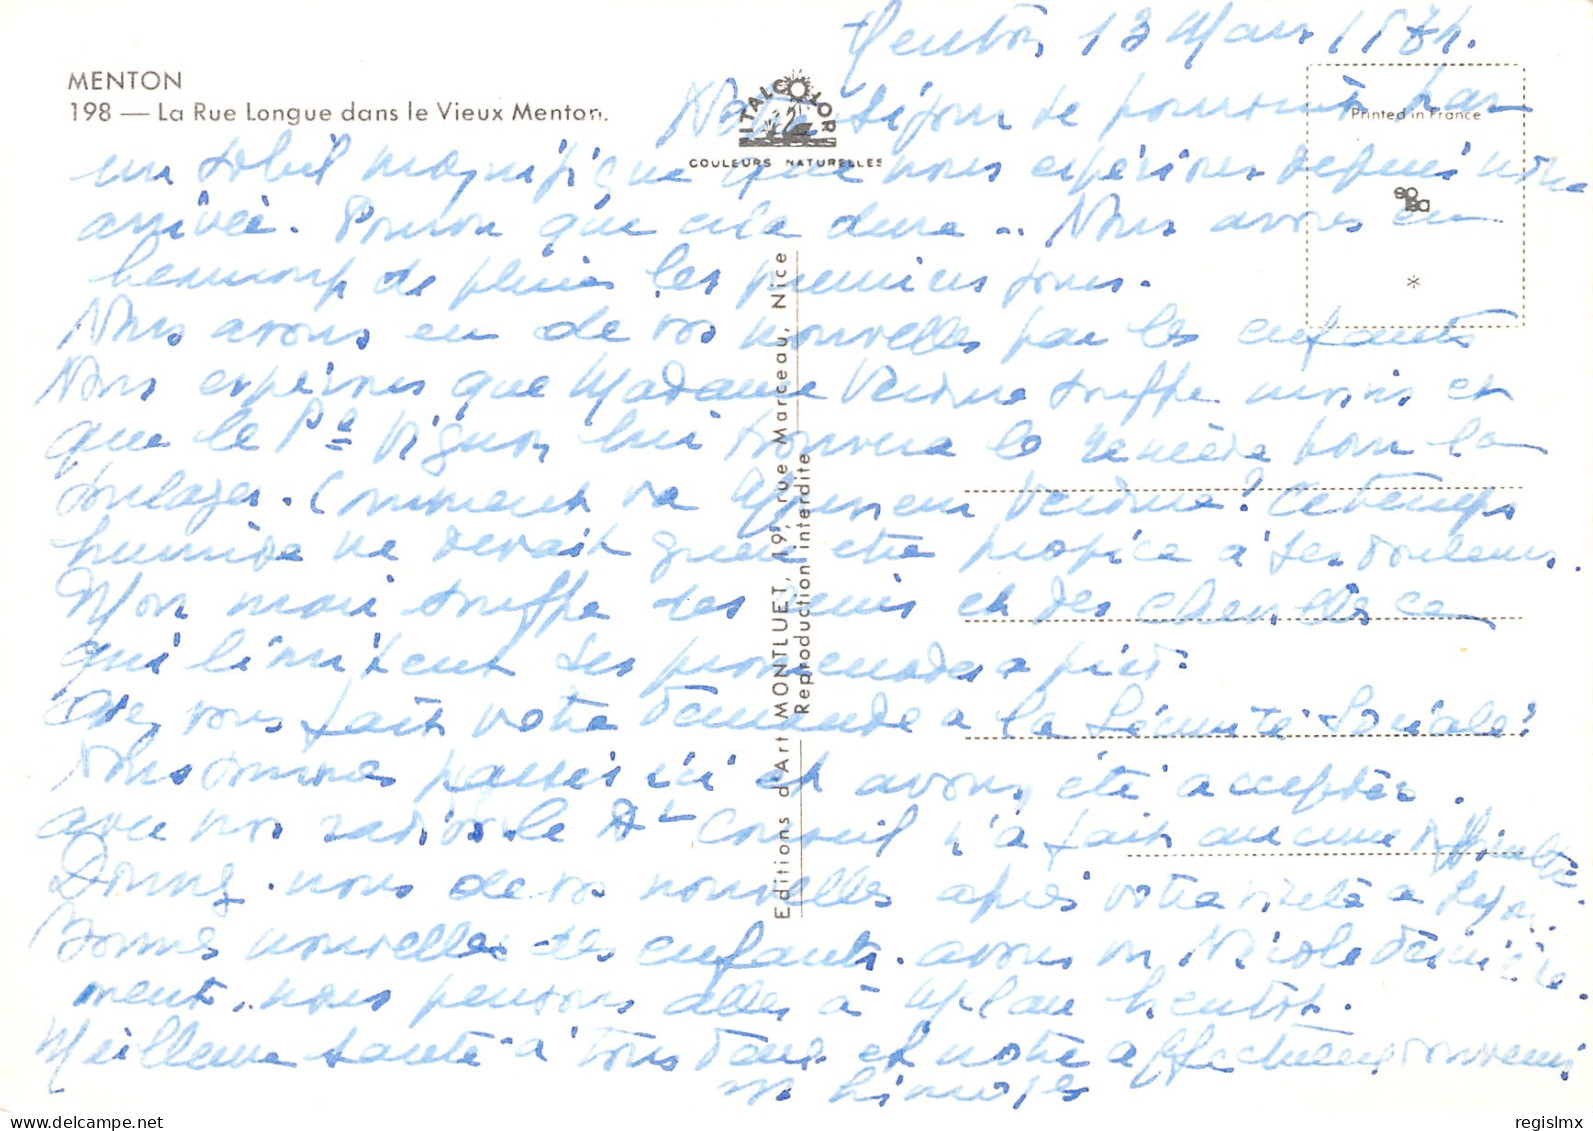 Menton 13 Mars 1974.
MENTON
198 — La Rue Longue dans le Vieux Menton.
ITALCOLOR
COULEURS NATURELLES
Printed in France
*
Editions d'Art MONTLUET, 19, rue Marceau, Nice
Reproduction interdite
Notre séjour se poursuit par
un soleil magnifique que nous espérions depuis notre
arrivée. Pourvu que cela dure .. Nous avons eu
beaucoup de pluie les premiers jours.
Nous avons eu de vos nouvelles par les enfants
Nous espérons que Madame souffre moins et
que le Pr Vignon lui trouvera le remède pour la
soulager. Comment va Monsieur ? Ce temps
humide ne devait guère être propice à ses douleurs.
Mon mari souffre des reins et des chevilles ce
qui limitent ses promenades à pied.
Avez vous fait votre demande à la Sécurité Sociale?
Nous sommes passés ici et avons été acceptés.
avec nos radios le Dr Conseil n'a fait aucune difficulté.
Donnez-nous de vos nouvelles après votre visite à
Bonnes nouvelles des enfants. avons vu Nicole dernière
ment.. nous pensons aller à bientôt.
Meilleure santé à tous deux et notre affectueux souvenir
regislmx